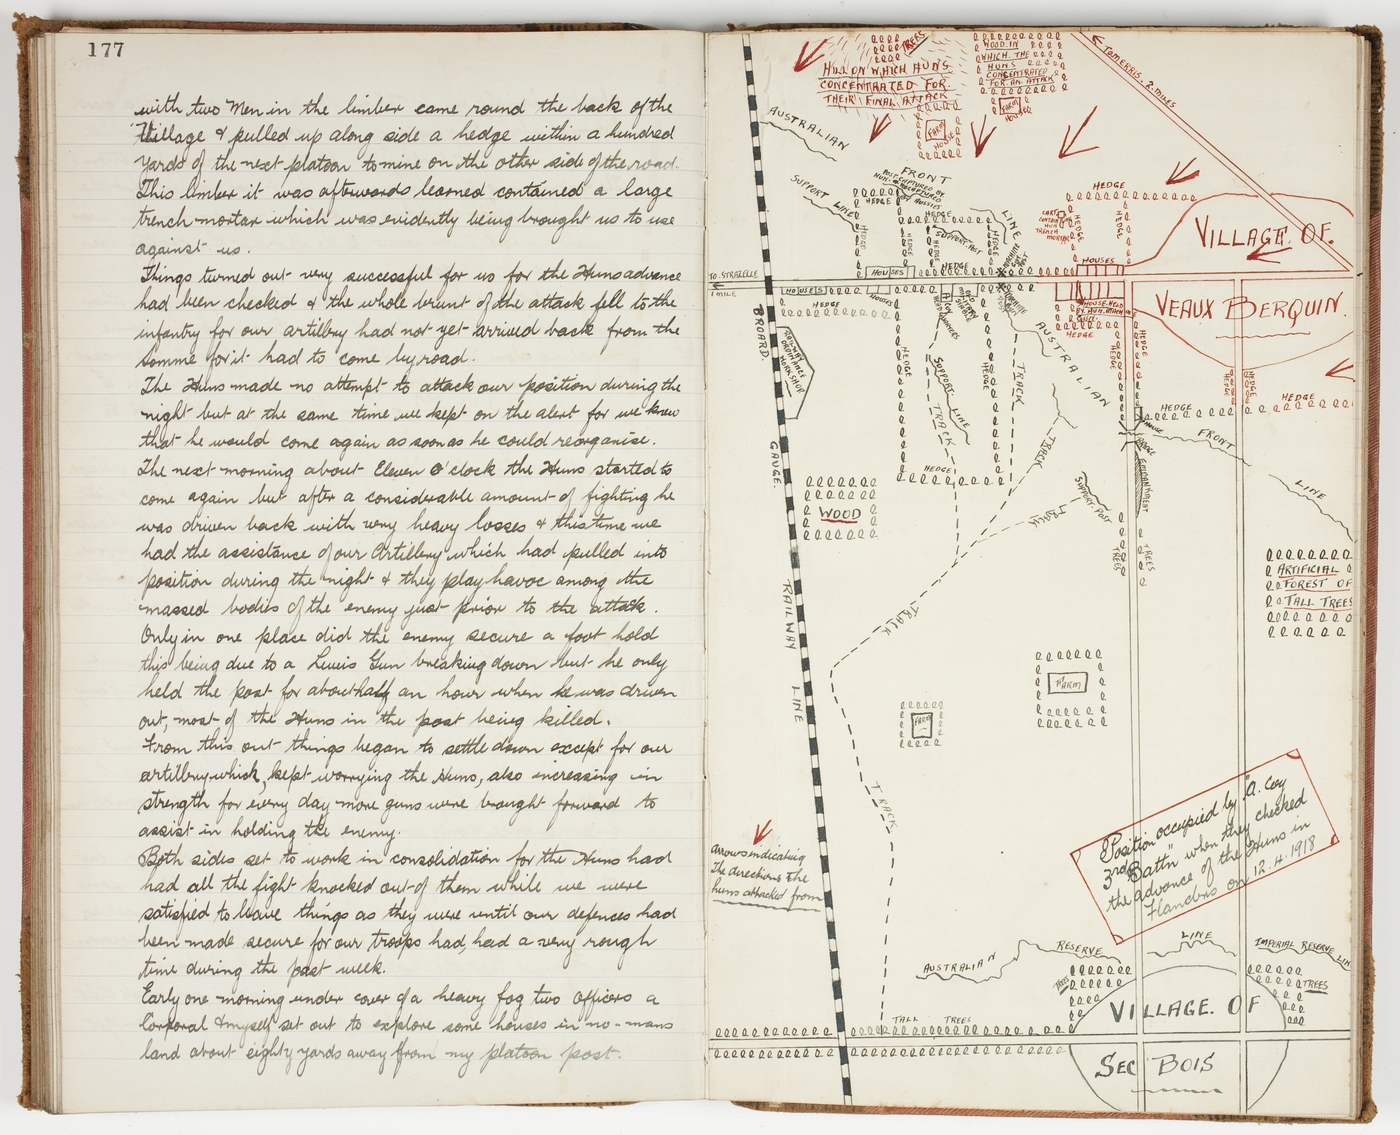 177
with two Men in the limber came round the back of the
Village & pulled up along side a hedge within a hundred
yards of the next platoon to mine on the other side of the road.
This limber it was afterwards learned contained a large
trench mortar which was evidently being brought us to use
against us.
Things turned out very successful for us for the Huns advance
had been checked & the whole brunt of the attack fell to the
infantry for our artillery had not yet arrived back from the
Somme for it had to come by road.
The Huns made no attempt to attack our position during the
night but at the same time we kept on the alert for we knew
that he would come again as soon as he could reorganise.
The next morning about Eleven O'clock the Huns started to
come again but after a considerable amount of fighting he
was driven back with very heavy losses & this time we
had the assistance of our Artillery which had pulled into
position during the night & they play havoc among the
massed bodies of the enemy just prior to the attack.
Only in one place did the enemy secure a foot hold
this being due to a Lewis Gun breaking down but he only
held the post for about half an hour when he was driven
out, most of the Huns in the post being killed.
From this out things began to settle down except for our
artillery which kept worrying the Huns, also increasing in
strength for every day more guns were brought forward to
assist in holding the enemy.
Both sides set to work in consolidation for the Huns had
had all the fight knocked out of them while we were
satisfied to leave things as they were until our defences had
been made secure for our troops had, had a very rough
time during the past week.
Early one morning under cover of a heavy fog two officers a
Corporal & myself set out to explore some houses in no-mans
land about eighty yards away from my platoon post.
TREES
HILL ON WHICH HUNS
CONCENTRATED FOR
THEIR FINAL ATTACK
WOOD IN
WHICH THE
HUNS
CONCENTRATED
FOR AN ATTACK
FARM
HOUSES
FARM
HOUSE
TO MERRIS. 2. MILES
AUSTRALIAN
FRONT
LINE
SUPPORT LINE
POST CAPTURED BY
HUNS & RECAPTURED
BY AUSSIES
HEDGE
HEDGE
HEDGE
HEDGE
HEDGE
HEDGE
HEDGE
SUPPORT POST
HEDGE
HEDGE
HEDGE
CART
CONTAINING
HUN
TRENCH
MORTAR
VILLAGE. OF.
VEAUX BERQUIN.
TO. STRAZELLE
1 MILE
HOUSES
HOUSES
HOUSES
HOUSES
HOUSE HELD
BY HUN MACHINE
GUN
HEDGE
HEDGE
HEDGE
HEDGE
HEDGE
HEDGE
HEDGE
HEDGE
HEDGE
HEDGE
HEDGE
BROARD.
GAUGE.
RAILWAY
LINE
RAILWAY
ORDINANCE
WORKSHOP
SUPPORT LINE
TRACK
TRACK
TRACK
TRACK
TRACK
TRACK
AUSTRALIAN
FRONT
LINE
HOUSE
BRIDGE
EMBANKMENT
SUPPORT POST
WOOD
TREES
TREES
ARTIFICIAL
FOREST OF
TALL TREES
FARM
FARM
arrows indicating
the directions the
huns attacked from
Position occupied by "A. Coy
3rd Battn" when they checked
the advance of the Huns in
Flanders on 12.4.1918
AUSTRALIAN
RESERVE
LINE
IMPERIAL RESERVE LIN
TREES
TREES
TALL TREES
VILLAGE. OF
SEC BOIS